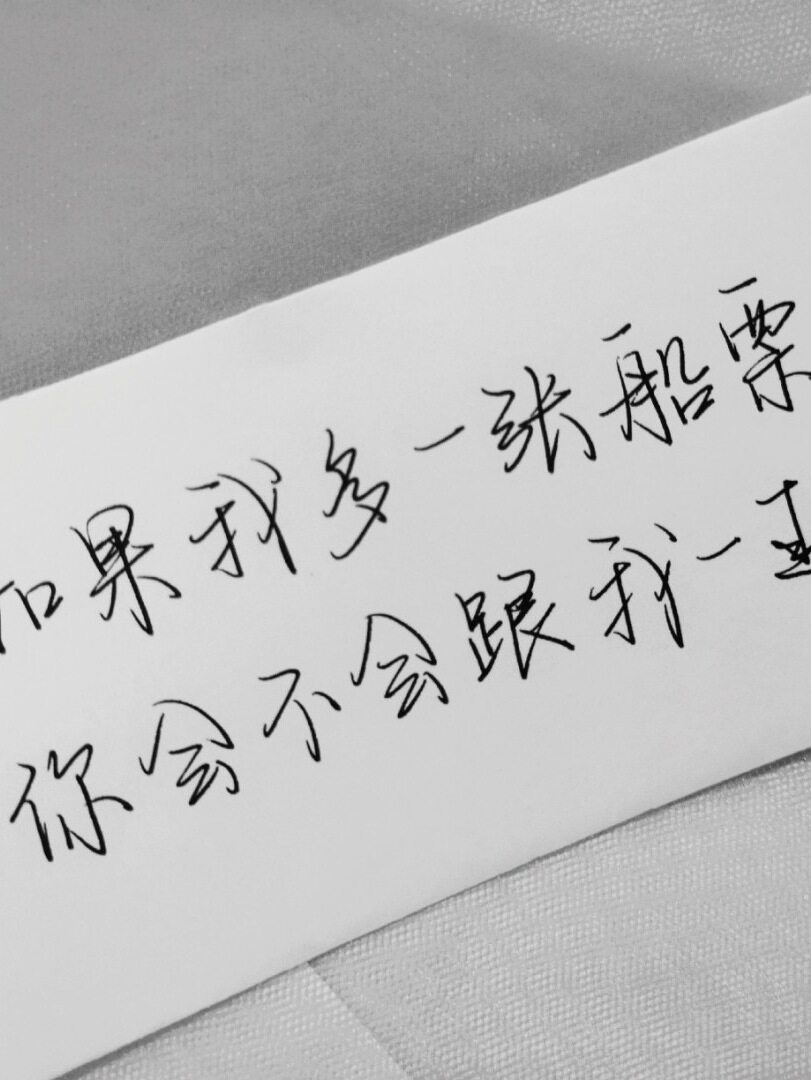 如果我多一张船票
你会不会跟我一起